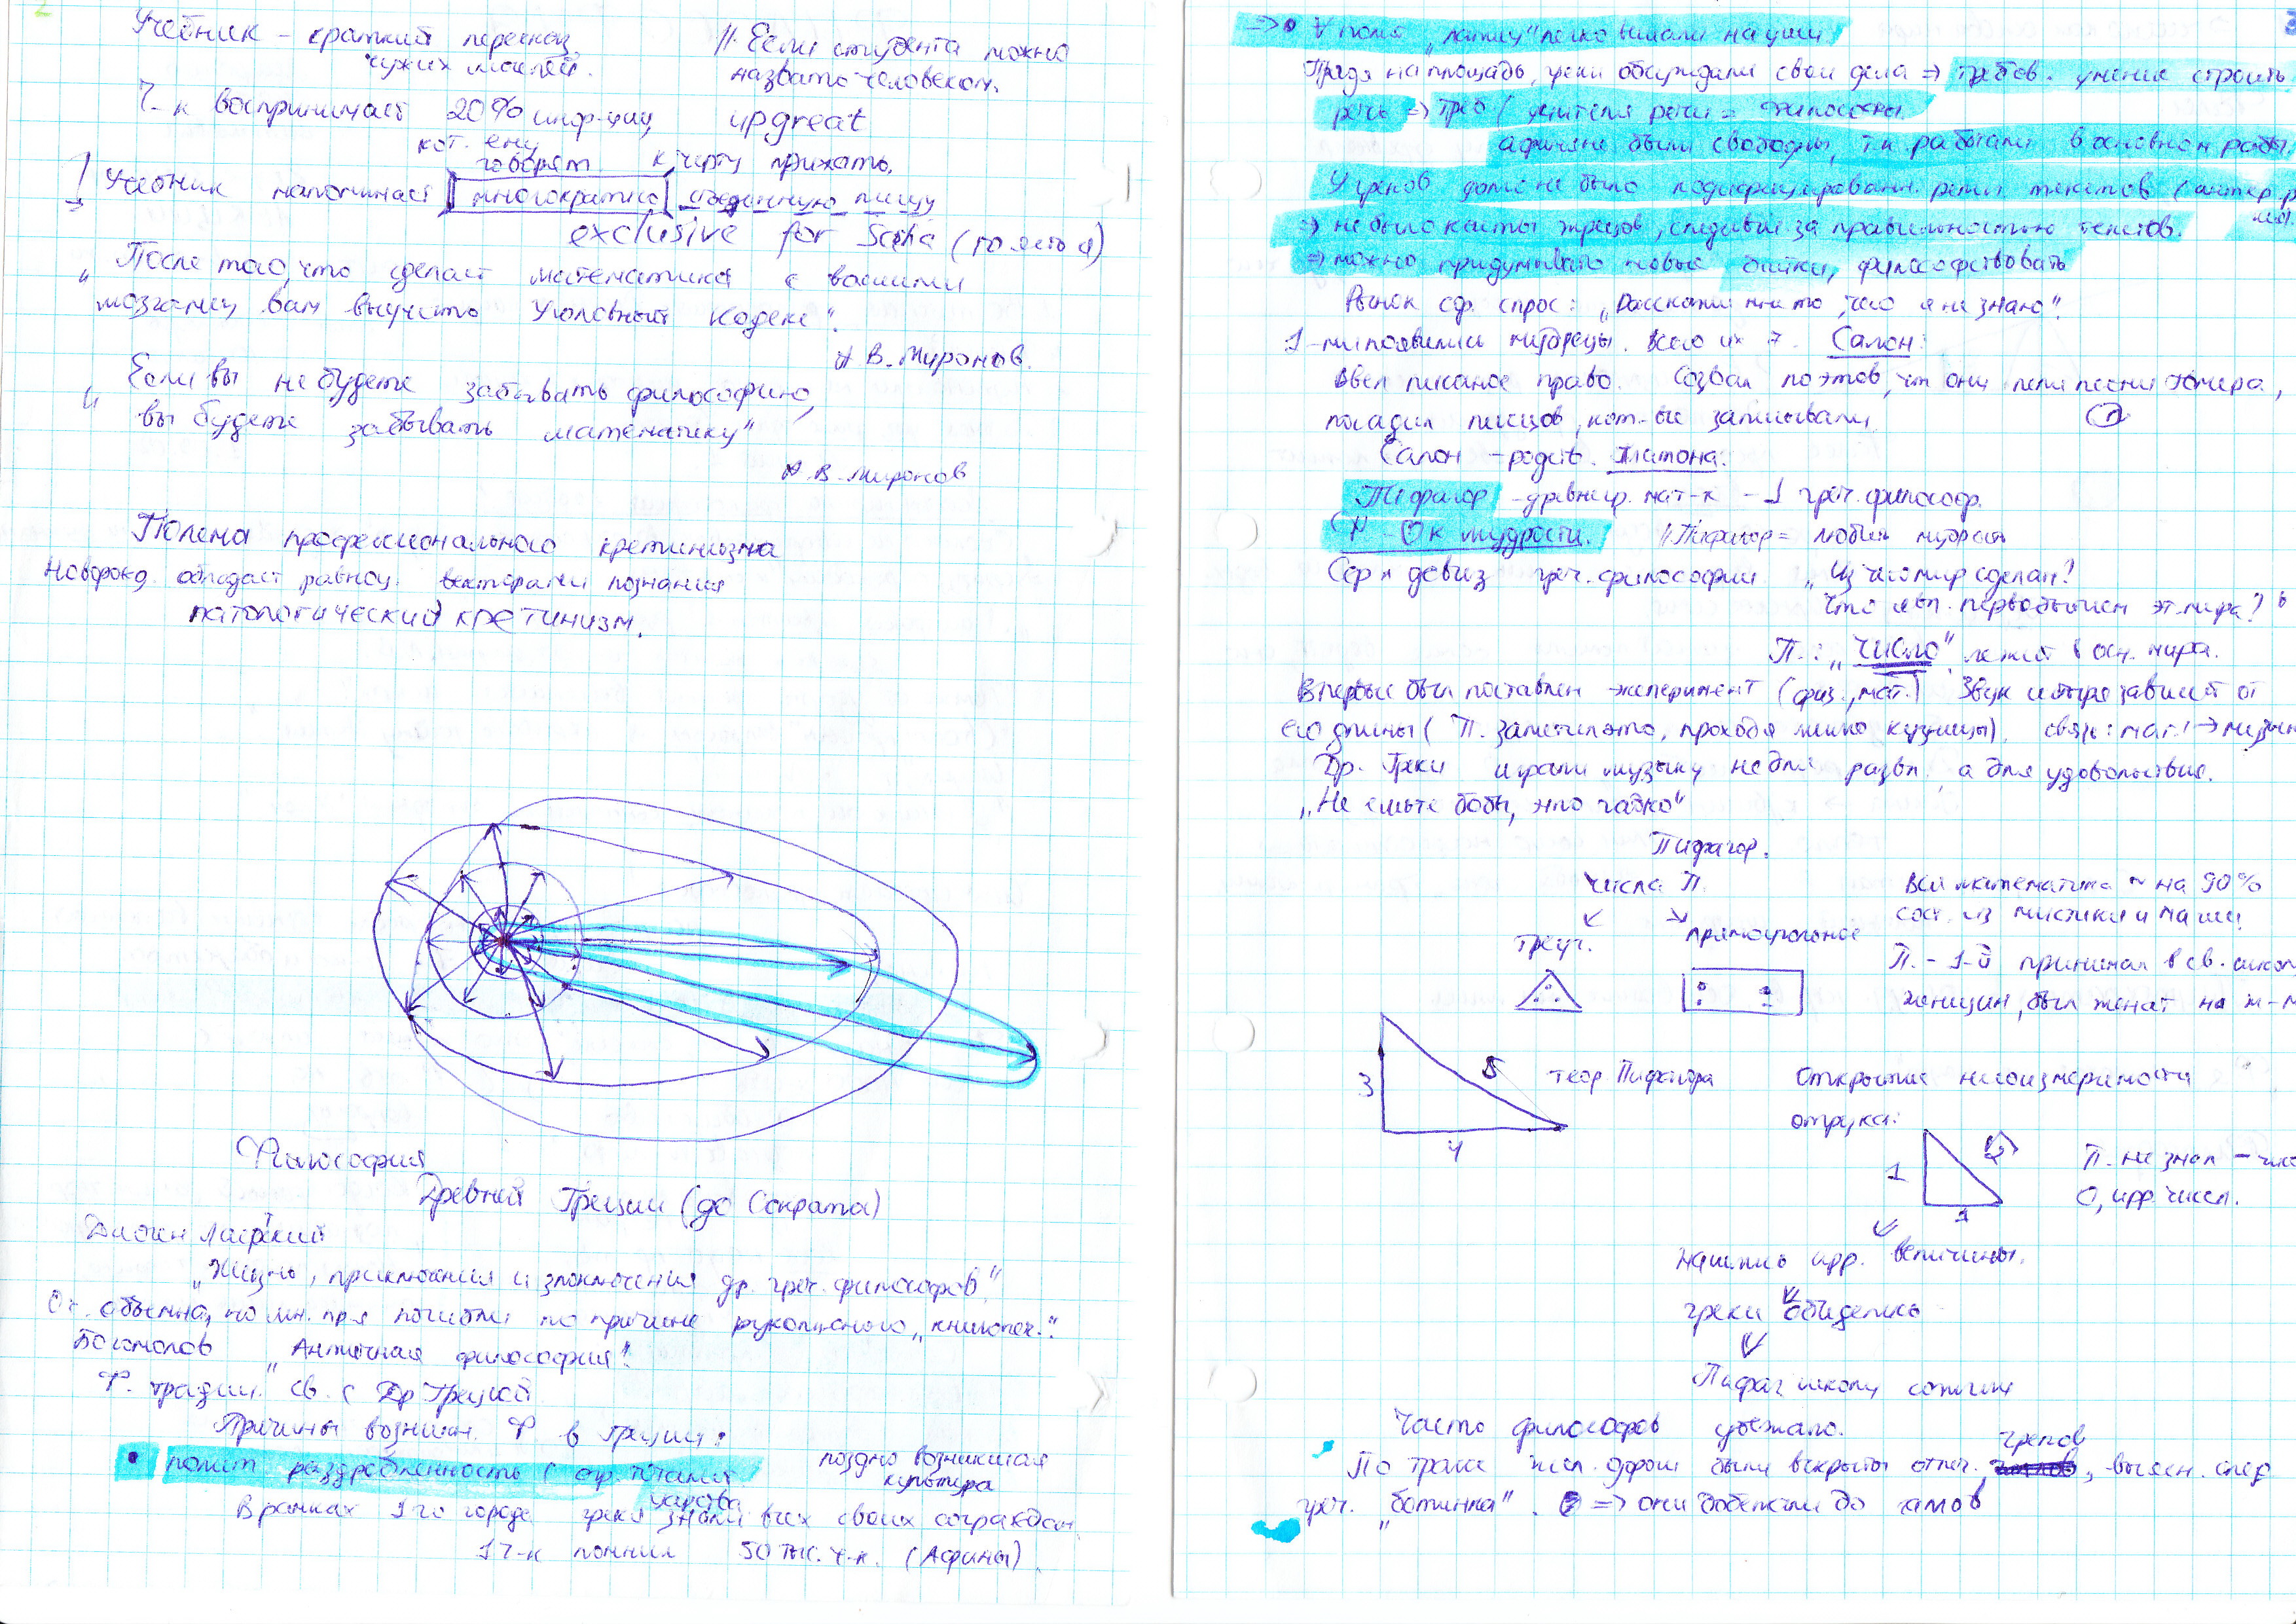 2
Учебник – краткий пересказ
чужих мыслей.
// Если студента можно
назвать человеком.
Ч-к воспринимает 20% инф-ции,
кот. ему
говорят
upgreat
к черту прижать,
! Учебник напоминает многократно съеденную пищу
exclusive for Sasha (то есть я)
„После того, что сделает математика с вашими
мозгами, вам выучить Уголовный Кодекс".
А.В. Миронов.
„Если вы не будете забывать философию,
вы будете забывать математику"
А.В. Миронов
профессионального кретинизма
Новорожд. обладает равноц. векторами познания
патологический кретинизм.
Философия
Древней Греции (до Сократа)
Диоген Лаэрткий
„Жизнь, приключения и злоключения др. греч. философов".
Оч. объемна, но мн. пр-я погибли по причине рукописного „книгопеч.".
Богомолов „Античная философия".
Ф. традиц. св. с Др Грецией
Причины возникн. Ф в Греции:
• полит раздробленность (
поздно возникшая
культура
царства
В рамках 1го города греки знали всех своих сограждан
1 ч-к помнил 50 тыс. ч-к. (Афины).
3
Придя на площадь, греки обсуждали свои дела ⇒ требов. умение строить
речь ⇒ треб ( учителя речи = философы
афиняне были свободны, т.к. работали в основном рабы.
У греков долго не было
⇒ не было касты жрецов, следивше за правильностью текстов.
⇒ можно придумывать новые байки, философствовать
Рынок сф. спрос: „Расскажи мне то, чего я не знаю".
1-ми появились мудрецы. Всего их 7. Салон:
Ввел писаное право. Созвал поэтов, чт они пели песни Гомера,
посадил писцов, кот-ые записывали.
Салон – родств. Платона.
Пифагор – древнегр. мат-к – 1 греч. философ.
Ф – О к мудрости. // Пифагор = любил мудрость
девиз греч. философии „Из чего мир сделан?
Что явл. первобытием эт. мира?
П.: „Число" лежит в осн. мира.
Впервые был поставлен эксперимент (физ., мат.) Звук зависит от
его длины ( П. заметил это, проходя мимо кузницы). связь: мат. → музык
Др. Греки играли музыку не для развл. а для удовольствия.
„Не ешьте бобы, это гадко"
Пифагор.
числа П.
треуг. прямоугольное
Вся математика ~ на 90%
сост. из мистики и магии
П. – 1-й принимал в св. школ
женщин, был женат на
3
4
5
теор Пифагора
Открытие несоизмеримости
отрезка:
1
1
√2
П. не знал – чис
0, ирр. чисел.
нашлись ирр. величины.
греки обиделись
Пифаг школу сожгли
Часто философов убежало.
греков
По трассе жел. дороги были вскрыты отпеч. , выясн. след
греч. „ботинка". ⇒ они добежали до